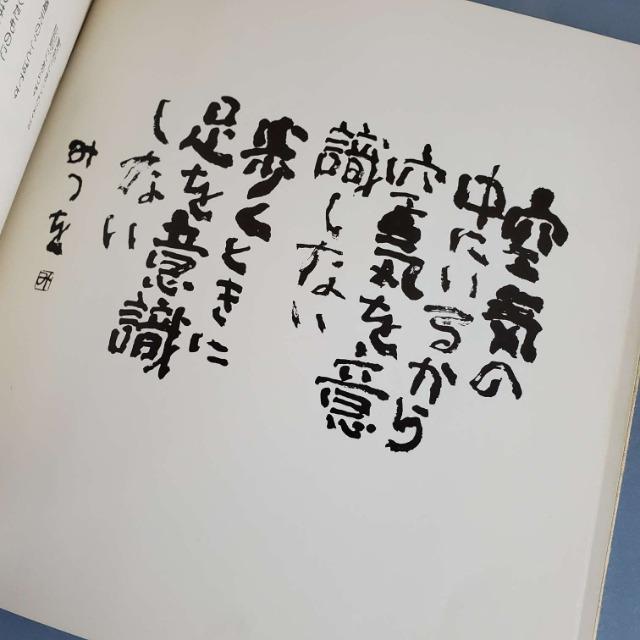 空気の
中にいるから
空気を意
識しない
歩くときに
足を意識
しない